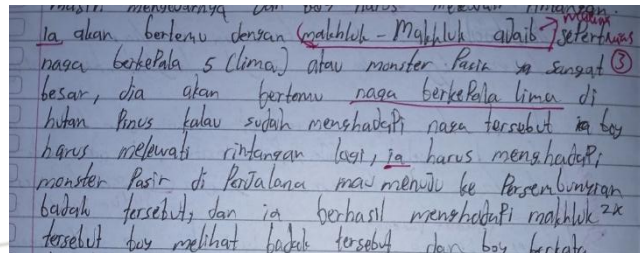 musin menyuruhnya dan boy harus melewati rintangan.
Ia akan bertemu dengan (makhluk - Makhluk adaib) seperti
naga berkepala 5 (lima) atau monster Pasir sangat ③
besar, dia akan bertemu naga berkepala lima di
hutan Pinus kalau sudah menghadapi naga tersebut boy
harus melewati rintangan lagi, ia harus menghadapi
monster Pasir di Perjalana mau menuju ke Persembunyian
badak tersebut, dan ia berhasil menghadapi makhluk 2x
tersebut boy melihat badak tersebut dan boy berkata